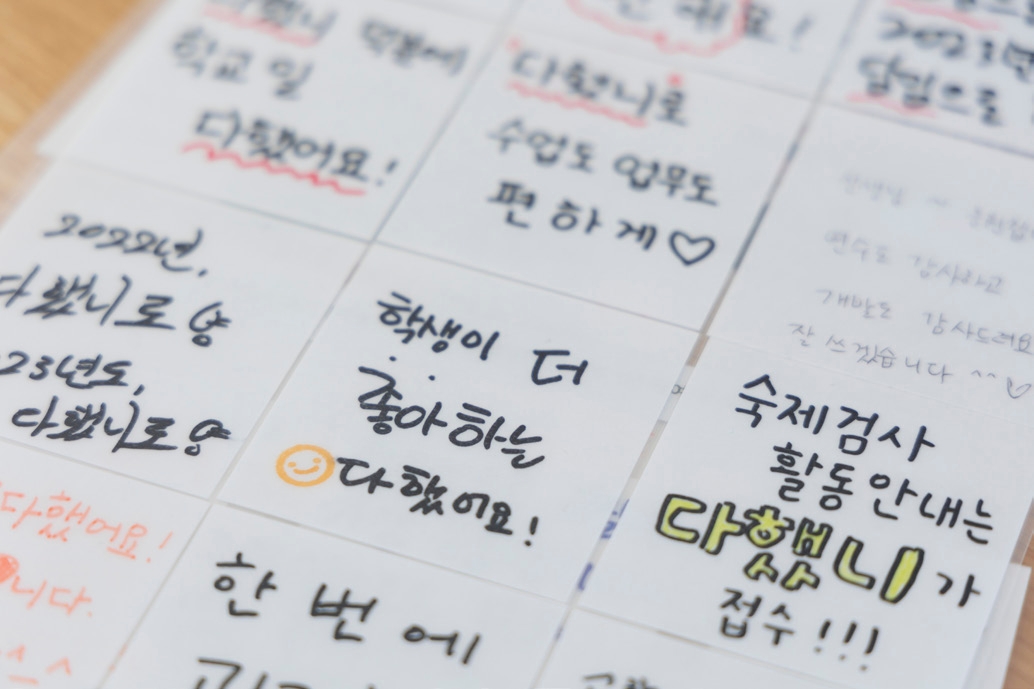 덕분에
학교 일
다했어요!
다했니로
수업도 업무도
편하게♡
2023년
담임으로
연수도 감사하고
개발도 감사드려요
잘 쓰겠습니다 ^^
2022년,
다했니로 양
23년도,
다했니로 양
학생이 더
좋아하는
다했어요!
숙제검사
활동안내는
다했니가
접수!!!
다했어요!
니다.
한 번에